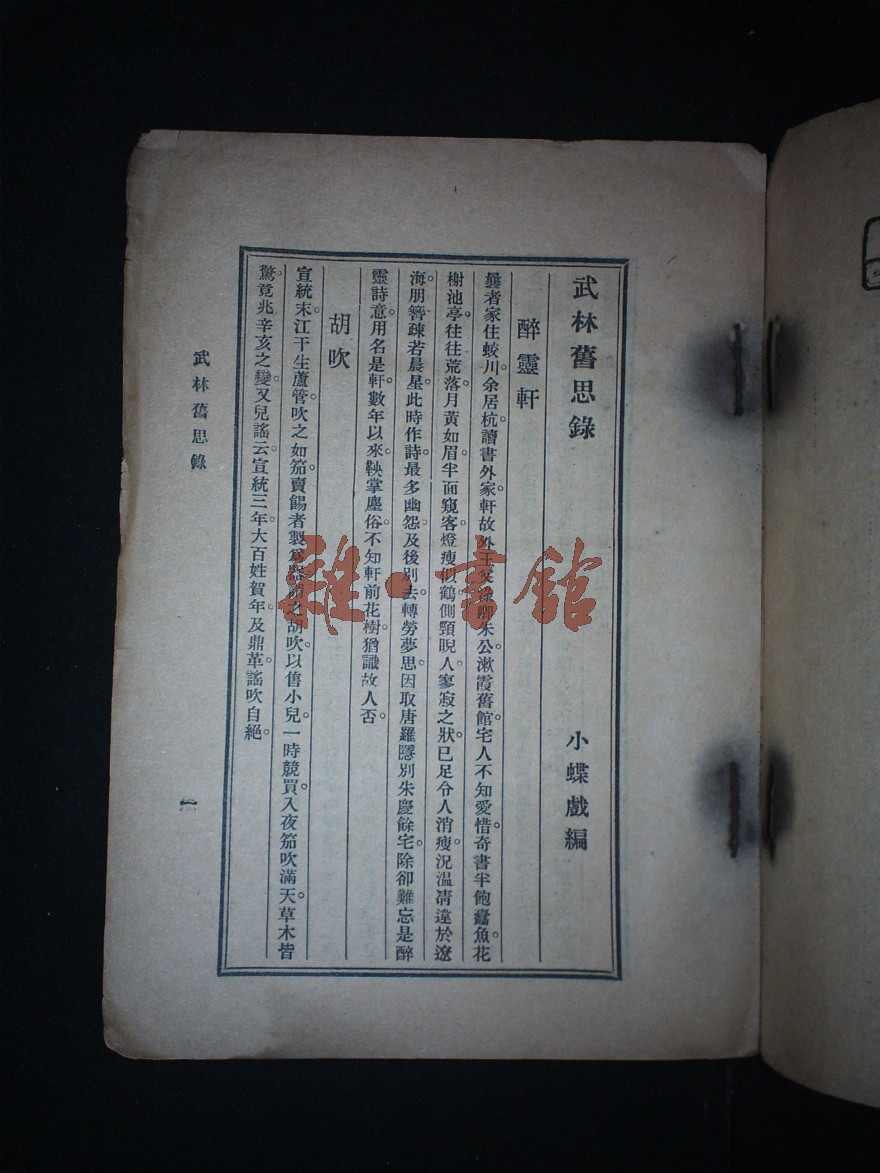 武林舊思錄　小蝶戲編
醉靈軒
彝者家住蛟川。余居杭讀書外家軒故外王父 朱公漱霞舊館宅人不知愛惜奇書半飽蠹魚。花
榭池亭。往往荒落。月黃如眉半面窺客。燈瘦似鶴側頸睨人。寥寂之狀已足令人消瘦。況温凊違於遼
海。朋簪疎若晨星。此時作詩。最多幽怨。及後別去。轉勞夢思。因取唐羅隱別朱慶餘宅。除卻難忘是醉
靈詩意。用名是軒。數年以來。鞅掌塵俗。不知軒前花樹。猶識故人否。
胡吹
宣統末。江干生蘆管。吹之如笳。賣餳者製爲器謂之胡吹。以售小兒。一時競買。入夜笳吹滿天。草木皆
驚。竟兆辛亥之變。又兒謠云。宣統三年。大百姓賀年。及鼎革。謠吹自絕。
武林舊思錄
一
雜·書館